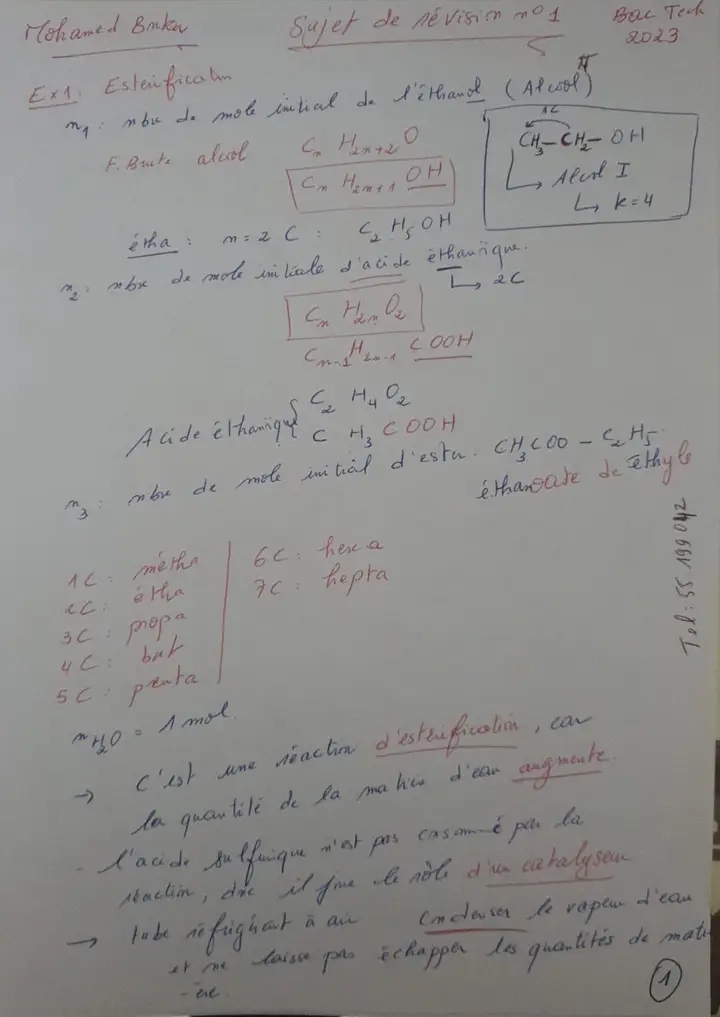 Mohamed Sujet de révision n° 1 Bac Tech
2023
Ex1: Esterificatn
n1: nbre de mole initial de l'éthanol (Alcool)
F. Brute alcool Cn H2n+2 O
Cn H2n+1 OH
1C
CH3-CH2-OH
Alcool I
k=4
étha: n=2 C: C2 H5 OH
n2: nbre de mole initiale d'acide éthanoïque.
2C
Cn H2n O2
Cn-1 H2n-1 COOH
Acide éthanoïque { C2 H4 O2
C H3 COOH
n3: nbre de mole initial d'ester. CH3COO-C2H5.
éthanoate de éthyle
1C: métha
2C: étha
3C: propa
4C: but
5C: penta
6C: hexa
7C: hepta
Tel: 55 199 042
nH2O = 1 mol.
→ C'est une réaction d'estérification, car
la quantité de la matière d'eau augmente.
- l'acide sulfurique n'est pas consommé par la
réaction, donc il joue le rôle d'un catalyseur
→ tube réfrigérant à air condenser le vapeur d'eau
et ne laisse pas échapper les quantités de mati
-ère.
1